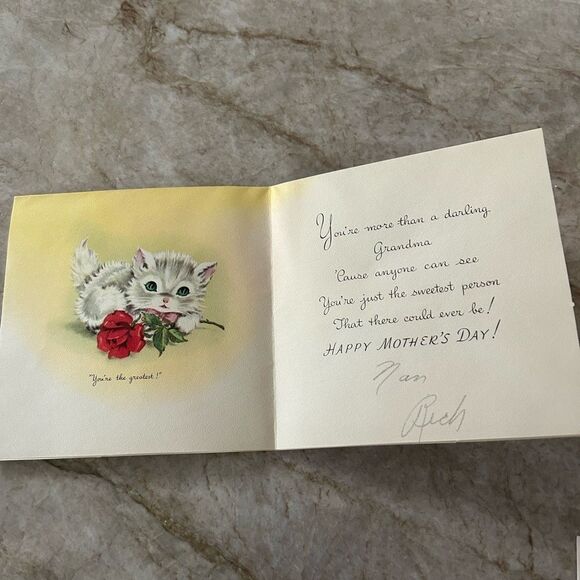 "You're the greatest!"
You're more than a darling
Grandma
'Cause anyone can see
You're just the sweetest person
That there could ever be!
HAPPY MOTHER'S DAY!
Nan
Rich